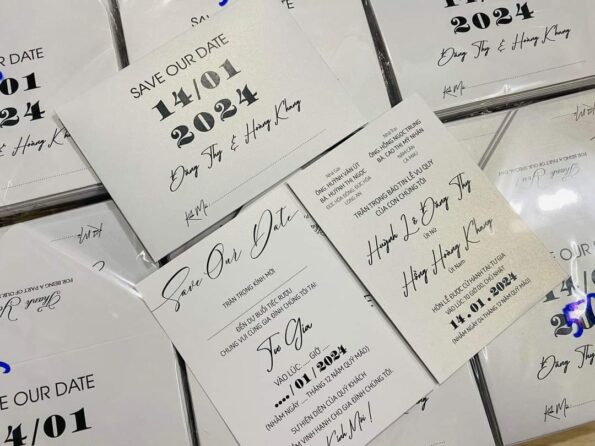 SAVE OUR DATE
14/01
2024
Đăng Thy & Hoàng Khang
Kính Mời
Save Our Date
TRÂN TRỌNG KÍNH MỜI
ĐẾN DỰ BUỔI TIỆC RƯỢU
CHUNG VUI CÙNG GIA ĐÌNH CHÚNG TÔI TẠI:
Tư Gia
VÀO LÚC ..... GIỜ .....
..../01/2024
(NHẰM NGÀY ..... THÁNG 12 NĂM QUÝ MÃO)
SỰ HIỆN DIỆN CỦA QUÝ KHÁCH
VINH HẠNH CHO GIA ĐÌNH CHÚNG TÔI.
Kính Mời !
NHÀ GÁI
ÔNG. HUỲNH VĂN ÚT
BÀ. HUỲNH THỊ NGỌC
ĐỨC HÒA ĐÔNG, ĐỨC HÒA
LONG AN
NHÀ TRAI
ÔNG. HỒNG NGỌC TRUNG
BÀ. CAO THỊ MỸ NHÂN
NĂM CĂN
CÀ MAU
TRÂN TRỌNG BÁO TIN LỄ VU QUY
CỦA CON CHÚNG TÔI
Huỳnh Lê Đăng Thy
Út Nữ
Hồng Hoàng Khang
Út Nam
HÔN LỄ ĐƯỢC CỬ HÀNH TẠI TƯ GIA
VÀO LÚC 10 GIỜ 00, CHỦ NHẬT
14.01.2024
(NHẰM NGÀY 04 THÁNG 12 NĂM QUÝ MÃO)
SAVE
2024
Đăng Thy & Hoàng Khang
OUR DATE
/01
2024
Hoàng Khang
Thank You
FOR BEING A PART OF OUR
SAVE OUR DATE
14/01
14/
202
Đăng Thy &